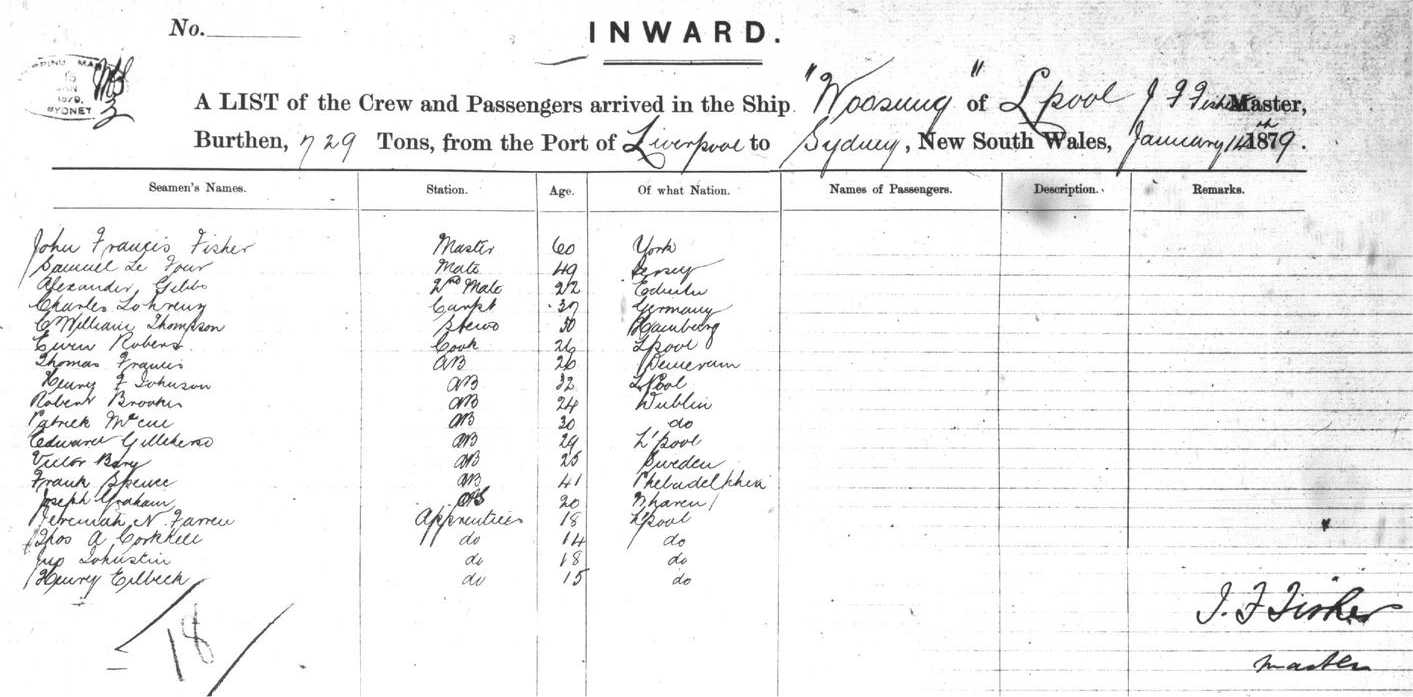 No.
INWARD.
SHIPPING MA
15
JAN
1879.
SYDNEY
A LIST of the Crew and Passengers arrived in the Ship "Woosung" of Lpool J F Fisher Master,
Burthen, 729 Tons, from the Port of Liverpool to Sydney, New South Wales, January 14th 1879.
Seamen's Names. Station. Age. Of what Nation. Names of Passengers. Description. Remarks.
John Francis Fisher Master 60 York
Samuel Le Four Mate 49 Jersey
Alexander Gibbs 2nd Mate 22
Charles Carpt 37 Germany
William Thompson 30 Hamburg
Cook 26 Lpool
Thomas Francis AB 26
Henry F Johnson AB 32 LPool
Robert AB 24 Dublin
Patrick AB 30 do
Edward AB 29 L'pool
Victor AB 25 Sweden
Frank Spence AB 41
Joseph Graham 20
Jeremiah N. Farren Apprentices 18 L'pool
Thos A Corkhill do 14 do
Johnstin do 18 do
Henry Eilbeck do 15 do
18
J. F Fisher
Master